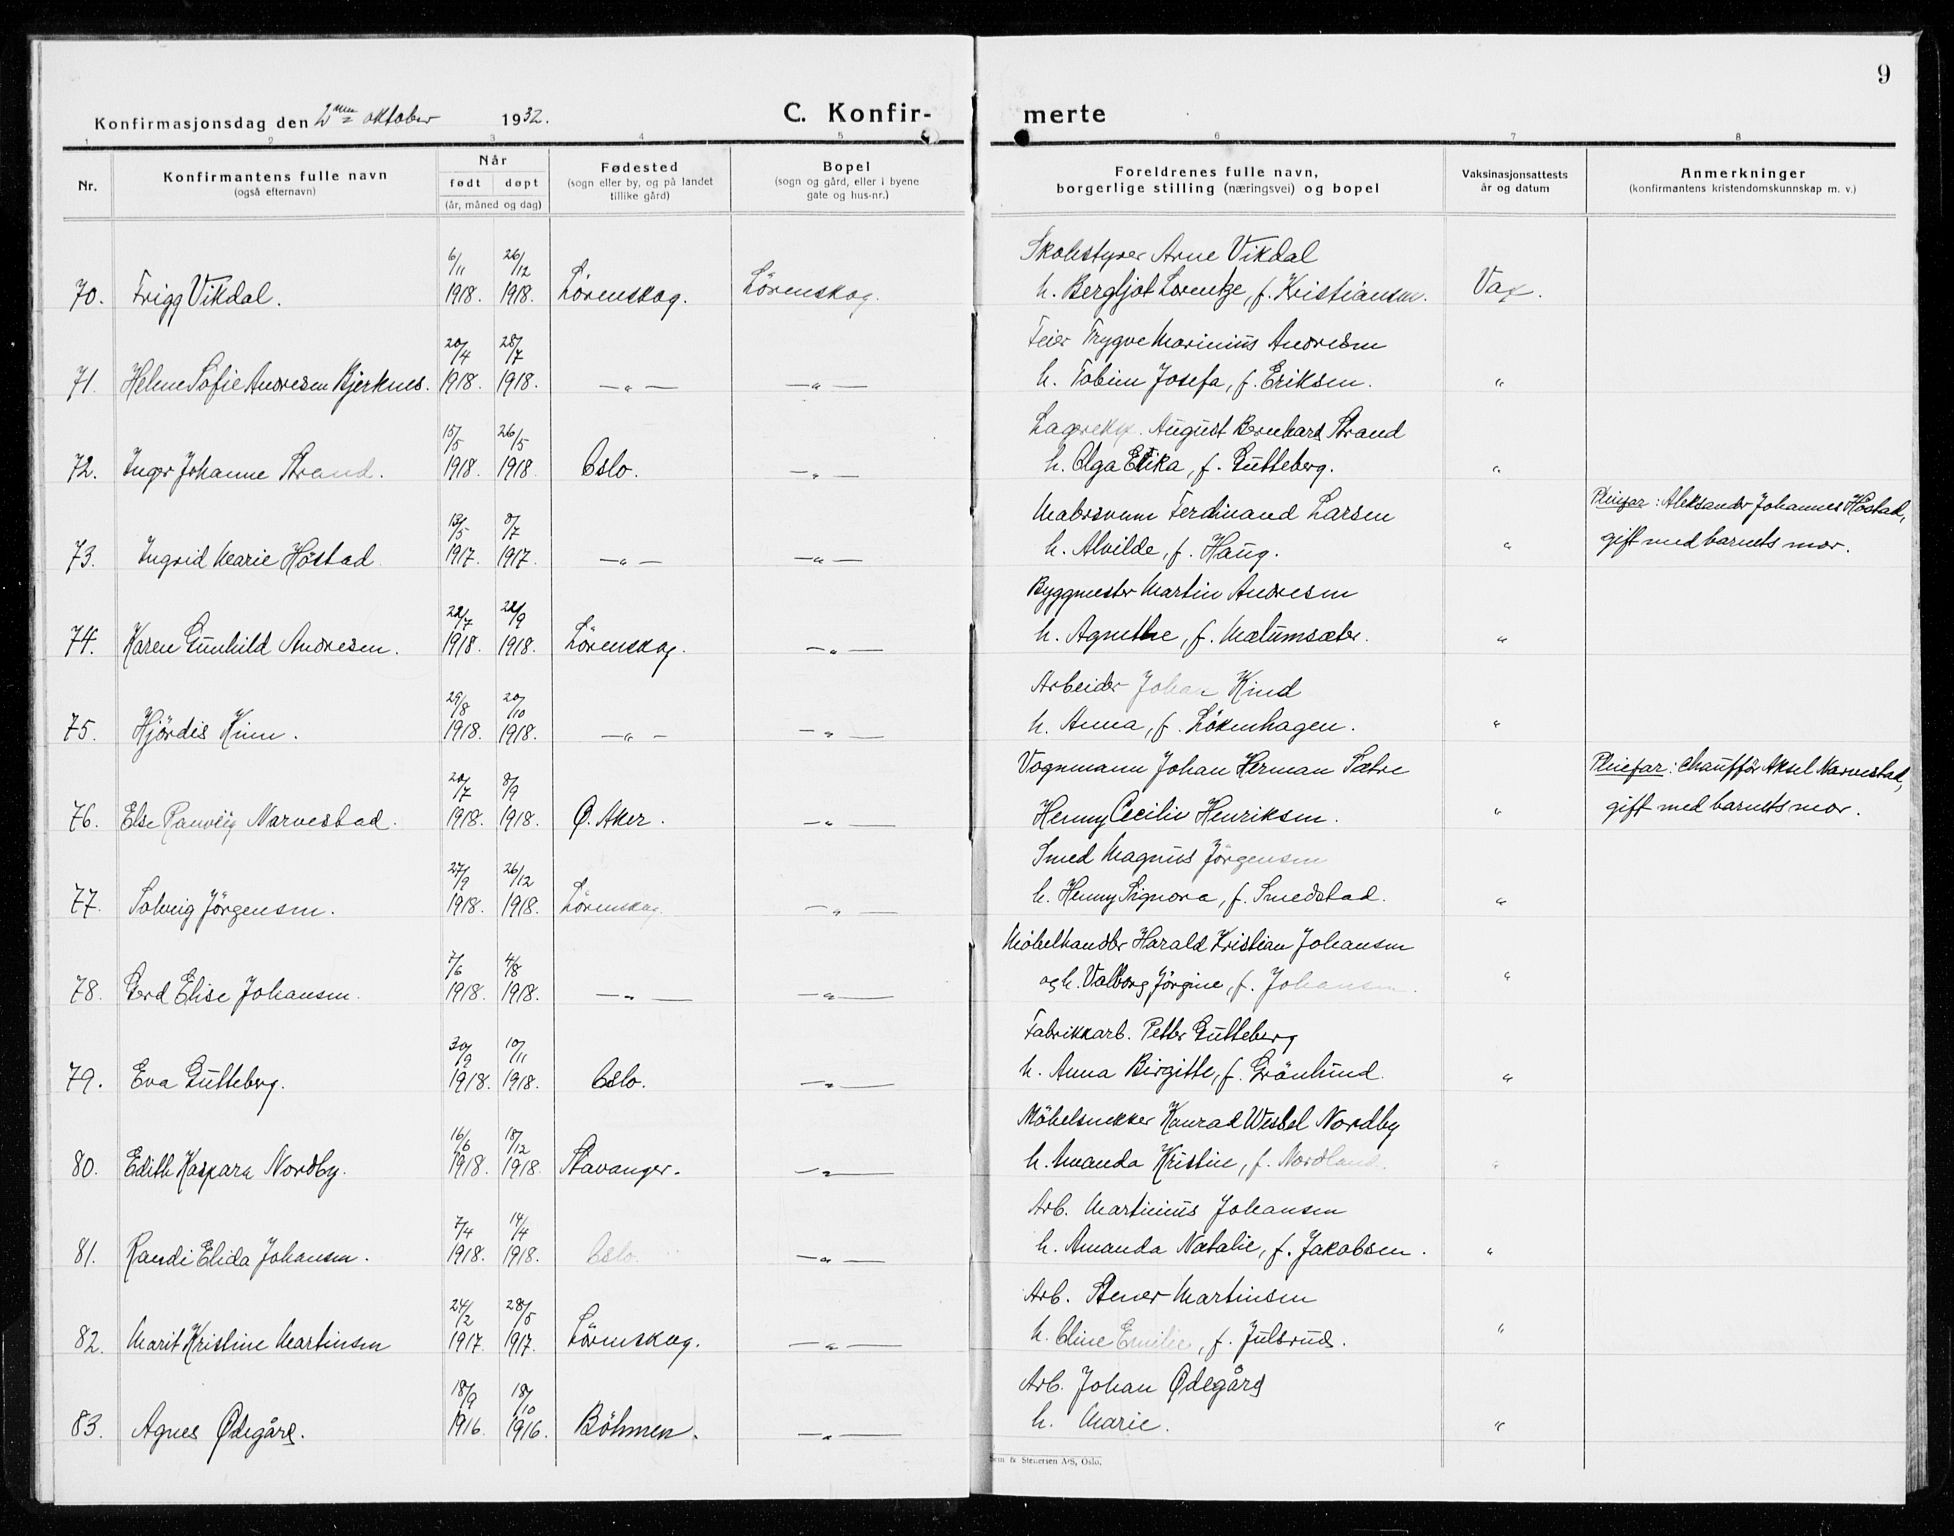 9
Konfirmasjonsdag den 2nen oktober 1932. C. Konfirmerte
1 2 3 4 5 6 7 8
Nr. Konfirmantens fulle navn (også efternavn) Når født døpt (år, måned og dag) Fødested (sogn eller by, og på landet tillike gård) Bopel (sogn og gård, eller i byene gate og hus-nr.) Foreldrenes fulle navn, borgerlige stilling (næringsvei) og bopel Vaksinasjonsattests år og datum Anmerkninger (konfirmantens kristendomskunnskap m. v.)
6/11 26/12 Skolestyrer Arne Vikdal
70. Frigg Vikdal. 1918. 1918. Lörenskog. Lörenskog. h. Bergljot Lorentze, f. Kristiansen. Vax.
20/4 28/7 Feier Trygve Marinius Andresen
71. Helene Sofie Andresen Bjerknes. 1918. 1918. —„— —„— h. Tobine Josefa, f. Eriksen. „
15/5 26/5 Lagereksp. August Bernhard Strand
72. Inger Johanne Strand. 1918. 1918 Oslo. —„— h. Olga Erika, f. Gutteberg. „
13/5 8/7 Malersvenn Ferdinand Larsen Pleiefar: Aleksander Johannes Höstad,
73. Ingrid Marie Höstad 1917. 1917. —„— —„— h. Alvilde, f. Haug. „ gift med barnets mor.
22/7 22/9 Byggmester Martin Andresen
74. Karen Gunhild Andresen. 1918. 1918. Lörenskog. —„— h. Agnethe, f. Mælumsæter. „
29/8 20/10 Arbeider Johan Kind
75. Hjördis Kinn. 1918. 1918. —„— —„— h. Anna, f. Lökenhagen. „
20/7 8/9 Vognmann Johan Herman Sætre Pleiefar: Chauffør Aksel Narvestad,
76. Else Ranveig Narvestad. 1918. 1918. Ø. Aker. —„— Henny Cecilie Henriksen. „ gift med barnets mor.
27/9 26/12 Smed Magnus Jörgensen
77. Solveig Jörgensen. 1918. 1918. Lörenskog. —„— h. Henny Signora, f. Smedstad. „
7/6 4/8 Möbelhandler Harald Kristian Johansen
78. Gerd Elise Johansen. 1918. 1918. —„— —„— og h. Valborg Jörgine, f. Johansen. „
30/9 10/11 Fabrikkarb. Petter Gutteberg
79. Eva Gutteberg. 1918. 1918. Oslo. —„— h. Anna Birgitte, f. Grönlund. „
16/6 18/12 Möbelsnekker Konrad Wessel Nordby
80. Edith Kaspara Nordby. 1918. 1918. Stavanger. —„— h. Amanda Kristine, f. Nordland. „
7/4 14/4 Arb. Martinius Johansen
81. Randi Elida Johansen. 1918. 1918. Oslo. —„— h. Amanda Natalie, f. Jakobsen. „
24/2 28/5 Arb. Stener Martinsen
82. Marit Kristine Martinsen 1917. 1917. Lörenskog. —„— h. Oline Emilie, f. Julsrud. „
18/9 18/10 Arb. Johan Ødegård
83. Agnes Ødegård. 1916. 1916. Böhmen. —„— h. Marie. „
Sem & Stenersen A/S, Oslo.